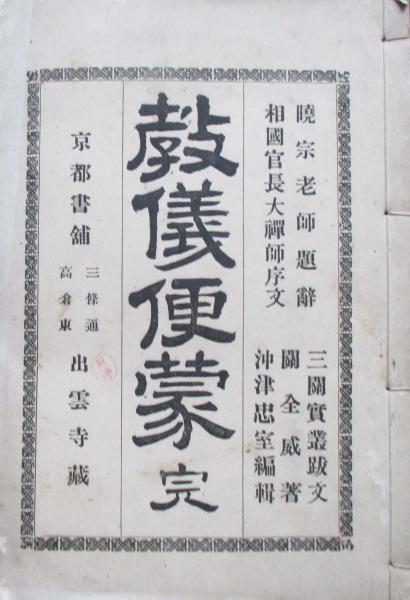 曉宗老師題辭
相國官長大禪師序文
三關實叢跋文
關全威著
沖津忠室編輯
敎儀便蒙 完
京都書舖
三條通
高倉東
出雲寺藏